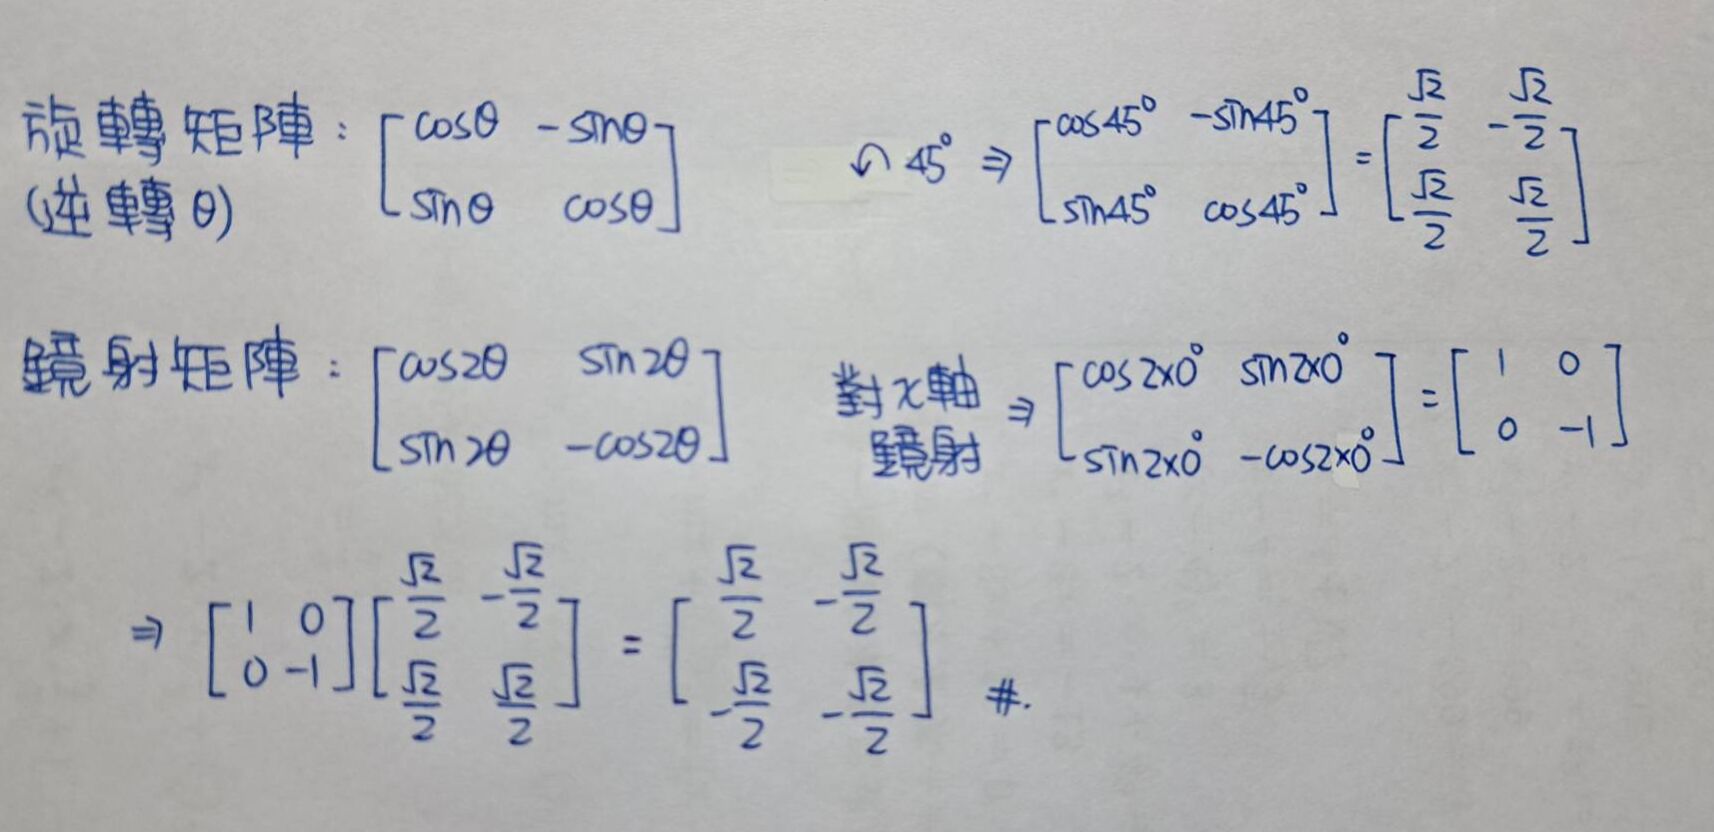 旋轉矩陣：[cosθ -sinθ; sinθ cosθ] ↶45° ⇒ [cos45° -sin45°; sin45° cos45°] = [√2/2 -√2/2; √2/2 √2/2]
(逆轉θ)
鏡射矩陣：[cos2θ sin2θ; sin2θ -cos2θ] 對x軸鏡射 ⇒ [cos2×0° sin2×0°; sin2×0° -cos2×0°] = [1 0; 0 -1]
⇒ [1 0; 0 -1][√2/2 -√2/2; √2/2 √2/2] = [√2/2 -√2/2; -√2/2 -√2/2] #.